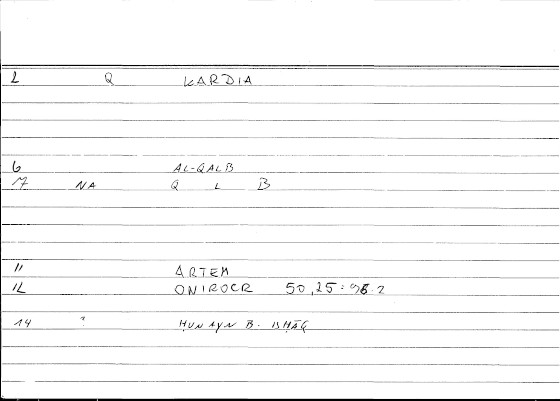 2 Q KARDIA
6 AL-QALB
17 NA Q L B
11 ARTEM
12 ONIROCR 50,25: 98.2
14 ḤUNAYN B. ISḤĀQ